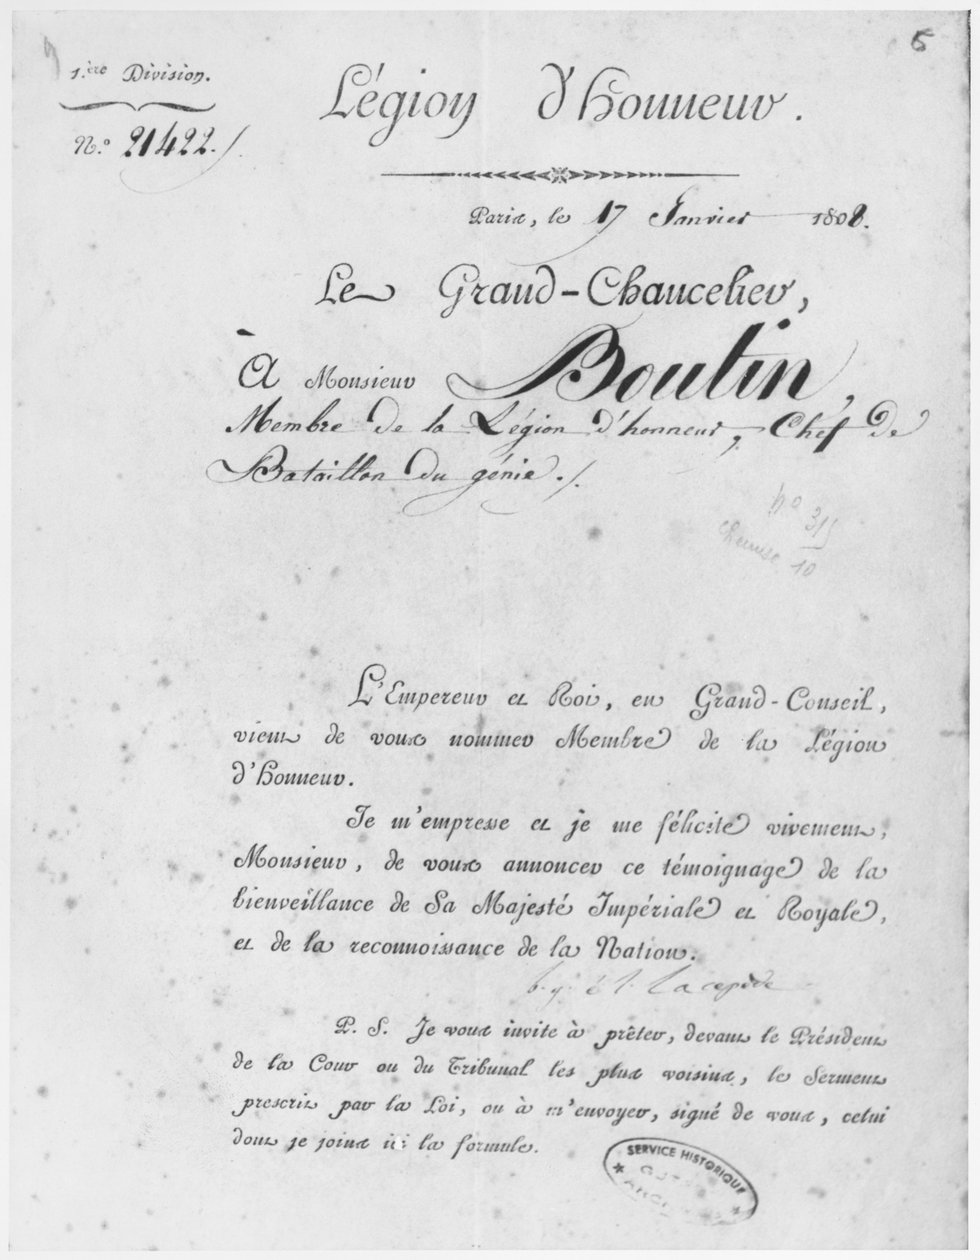 5
1.ère Division.
N.º 21422./.
Légion d'Honneur.
Paris, le 17 Janvier 1808.
Le Grand-Chancelier,
À Monsieur Boutin,
Membre de la Légion d'honneur, Chef de
Bataillon du génie./.
nº 31
10
L'Empereur et Roi, en Grand-Conseil,
vient de vous nommer Membre de la Légion
d'Honneur.
Je m'empresse et je me félicite vivement,
Monsieur, de vous annoncer ce témoignage de la
bienveillance de Sa Majesté Impériale et Royale,
et de la reconnoissance de la Nation.
b. g. é l. Lacepède
P. S. Je vous invite à prêter, devant le Président
de la Cour ou du Tribunal les plus voisins, le Serment
prescrit par la Loi, ou à m'envoyer, signé de vous, celui
dont je joins ici la formule.
SERVICE HISTORIQUE